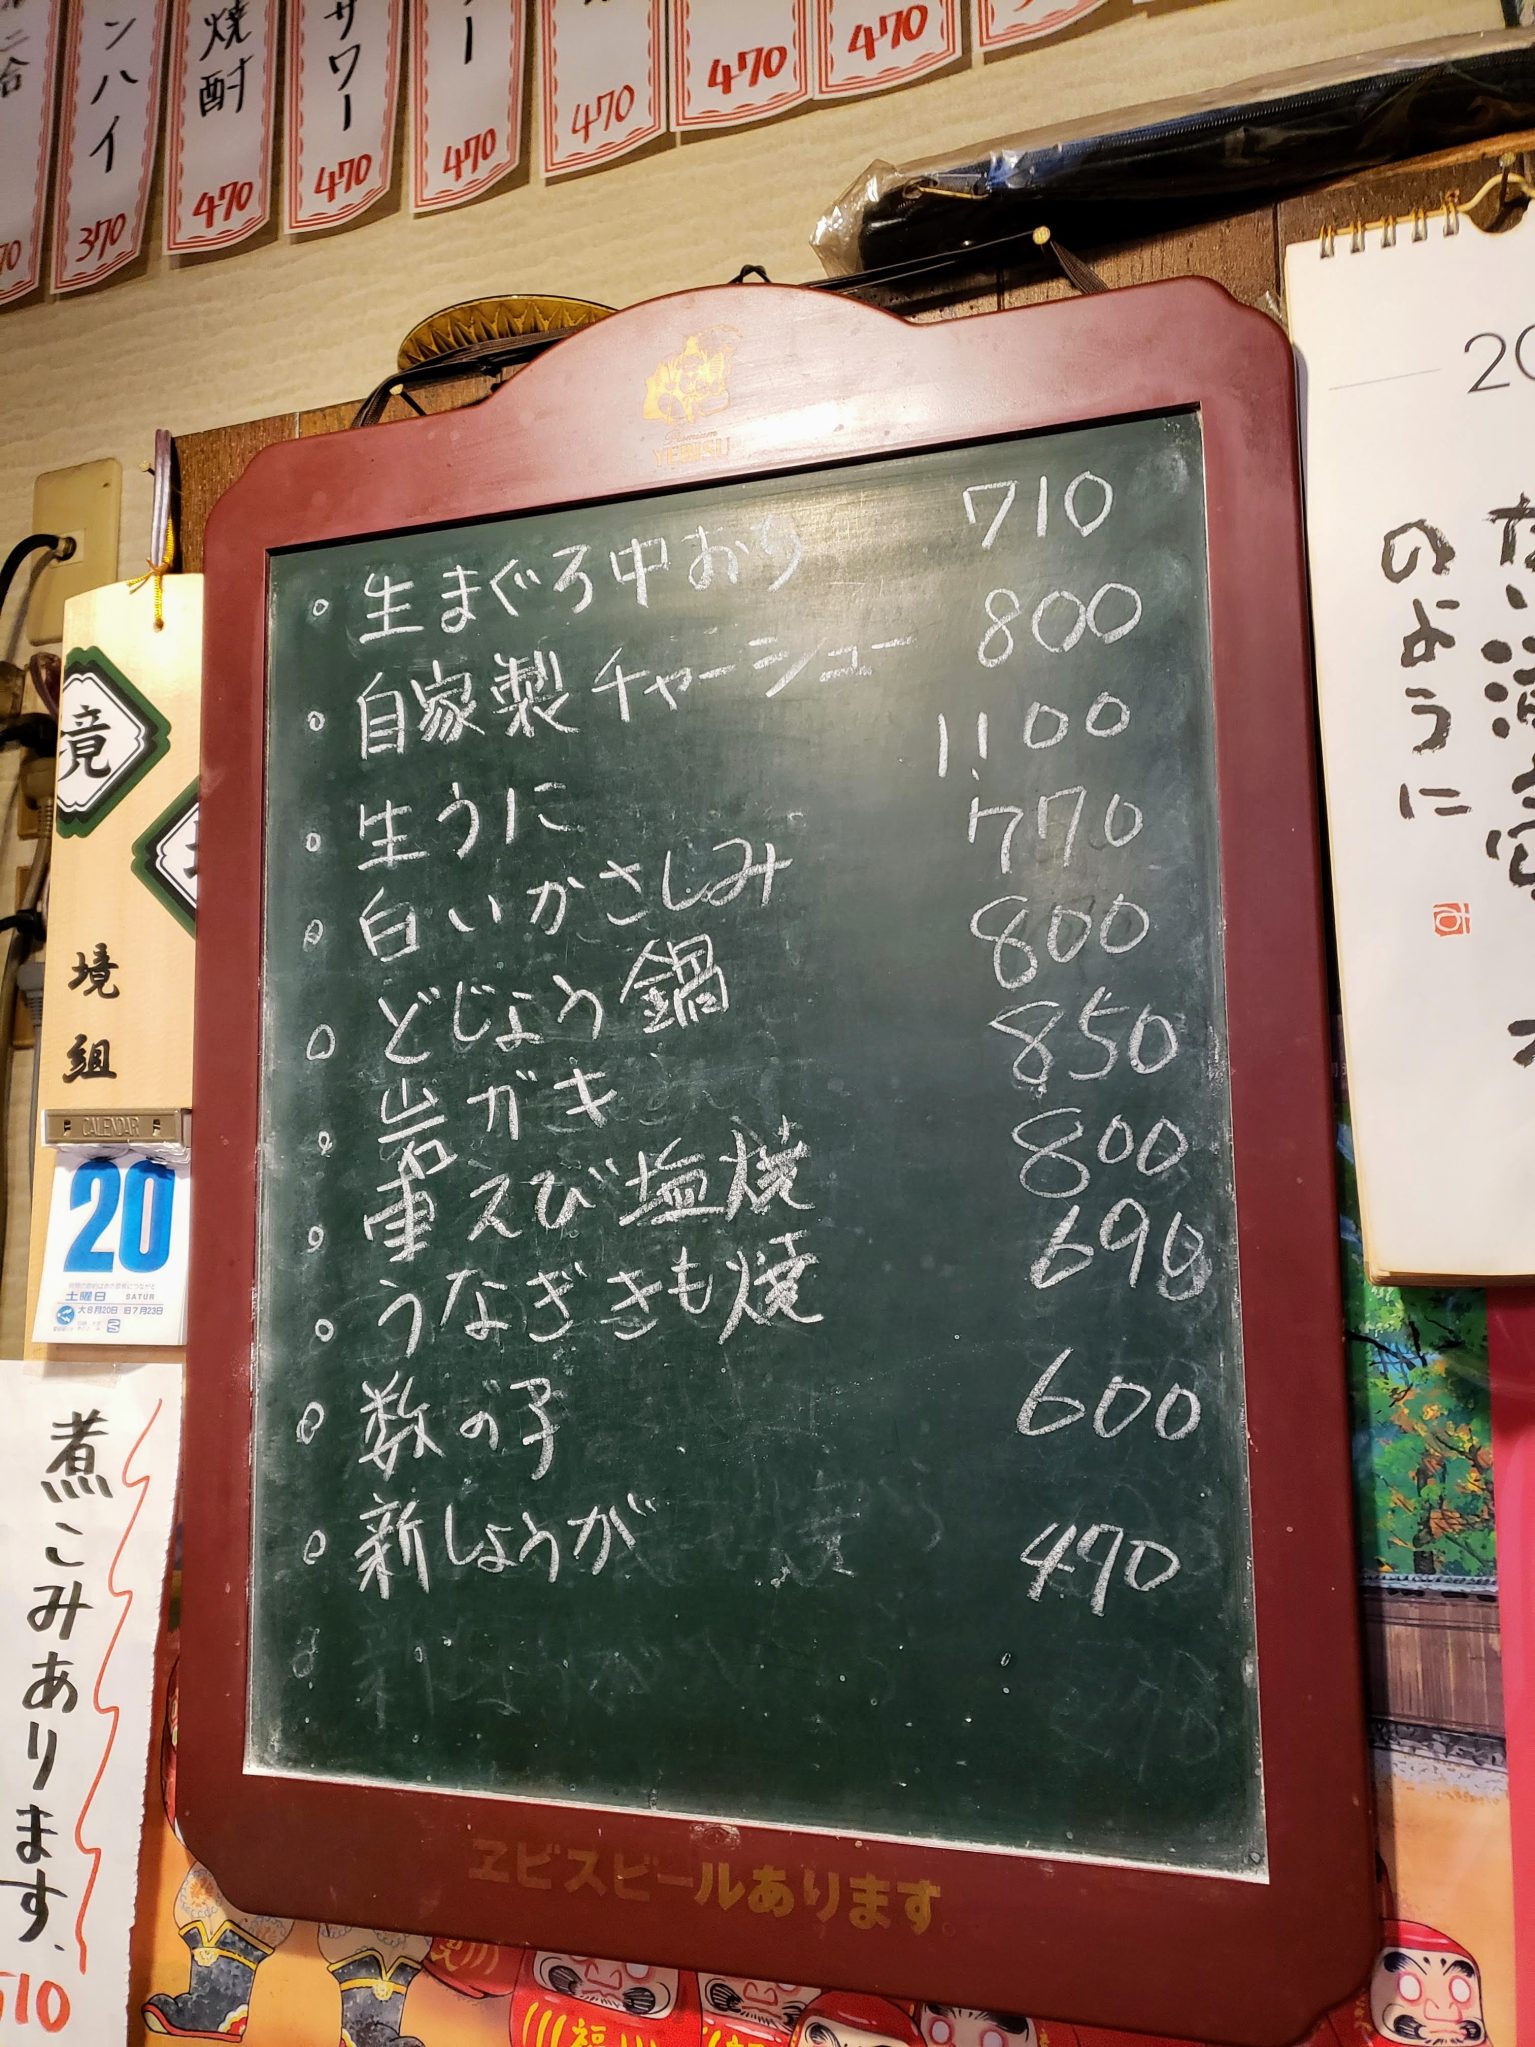 ンハイ
370
焼酎
470
サワー
470
ー
470
470
470
470
Premium
YEBISU
生まぐろ中おち 710
自家製チャーシュー 800
生うに 1100
白いかさしみ 770
どじょう鍋 800
岩ガキ 850
車えび塩焼 800
うなぎきも焼 690
数の子 600
新しょうが 470
ヱビスビールあります。
境
組
CALENDAR
20
土曜日 SATUR
大8月20日 旧7月23日
煮こみあります、
510
20
のように